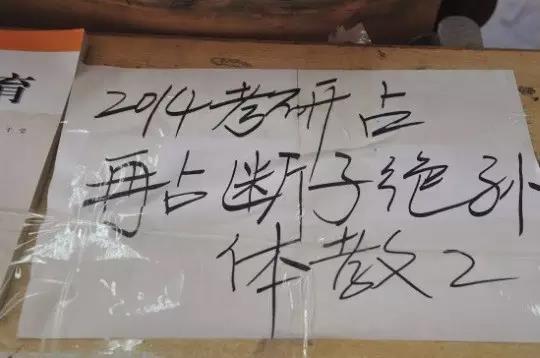 育
2014考研占
再占断子绝孙
体教2